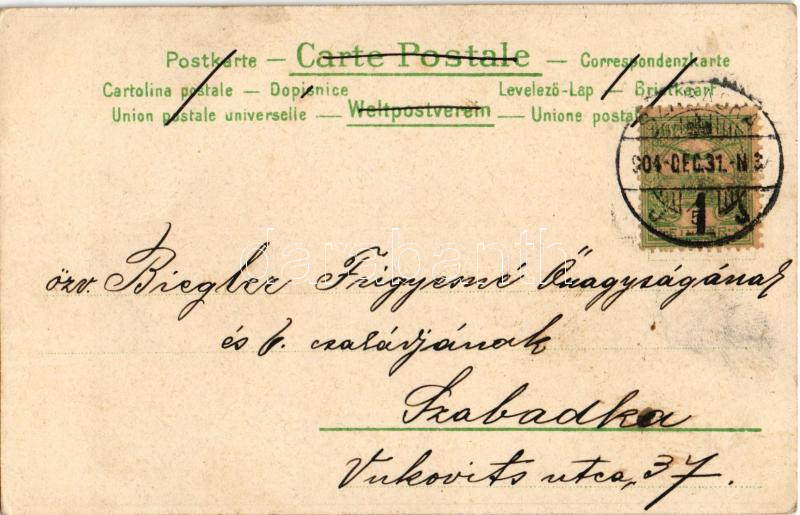 Postkarte — Carte Postale — Correspondenzkarte
Cartolina postale — Dopisnice Levelező-Lap — Briefkaart
Union postale universelle — Weltpostverein — Unione postale
904-DEC.31.-N 3
1
5
darabanth
özv. Biegler Frigyesné Őnagyságának
és b. családjának
Szabadka
Vukovits utca, 37.